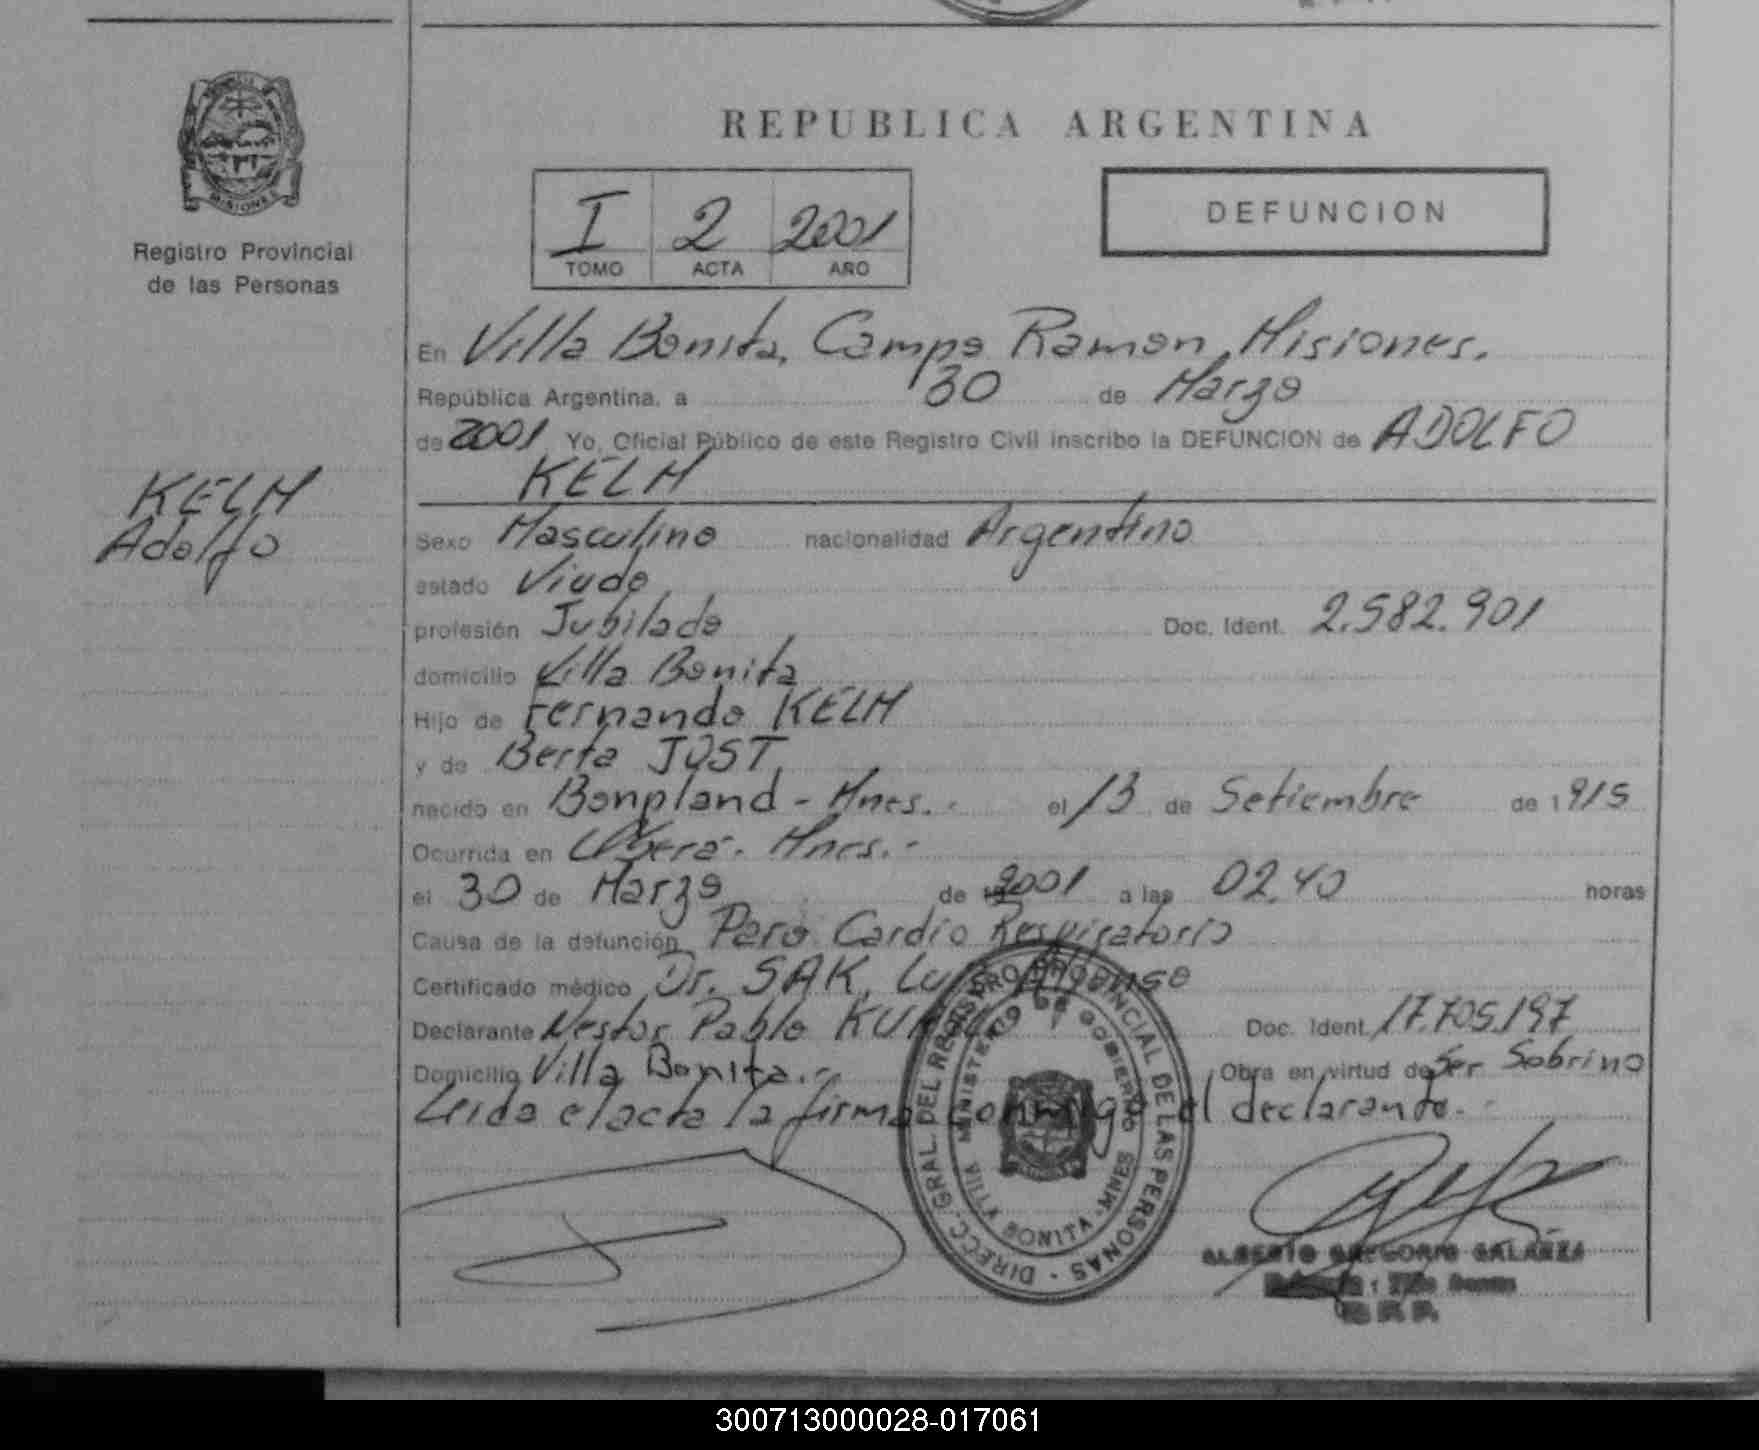 REPUBLICA ARGENTINA
MISIONES
Registro Provincial
de las Personas
I 2 2001
TOMO ACTA AÑO
DEFUNCION
En Villa Bonita, Campo Ramon, Misiones.
República Argentina, a 30 de Marzo
de 2001 Yo, Oficial Público de este Registro Civil inscribo la DEFUNCION de ADOLFO
KELM
KELM
Adolfo
Sexo Masculino nacionalidad Argentino
estado Viudo
profesión Jubilado Doc. Ident. 2.582.901
domicilio Villa Bonita
Hijo de Fernando KELM
y de Berta JOST
nacido en Bonpland - Mnes. - el 13 de Setiembre de 1915
Ocurrida en Oberá - Mnes. -
el 30 de Marzo de 2001 a las 02,40 horas
Causa de la defunción Paro Cardio Respiratorio
Certificado médico Dr. SAK, Luis Alfonso
Declarante Nestor Pablo Doc. Ident. 17.705.197
Domicilio Villa Bonita.- Obra en virtud de Ser Sobrino
Leida el acta la firma conmigo el declarante.-
DIRECC. GRAL. DEL REGISTRO PROVINCIAL DE LAS PERSONAS
MINISTERIO DE GOBIERNO
VILLA BONITA - MNES
ALBERTO GREGORIO GALARZA
300713000028-017061